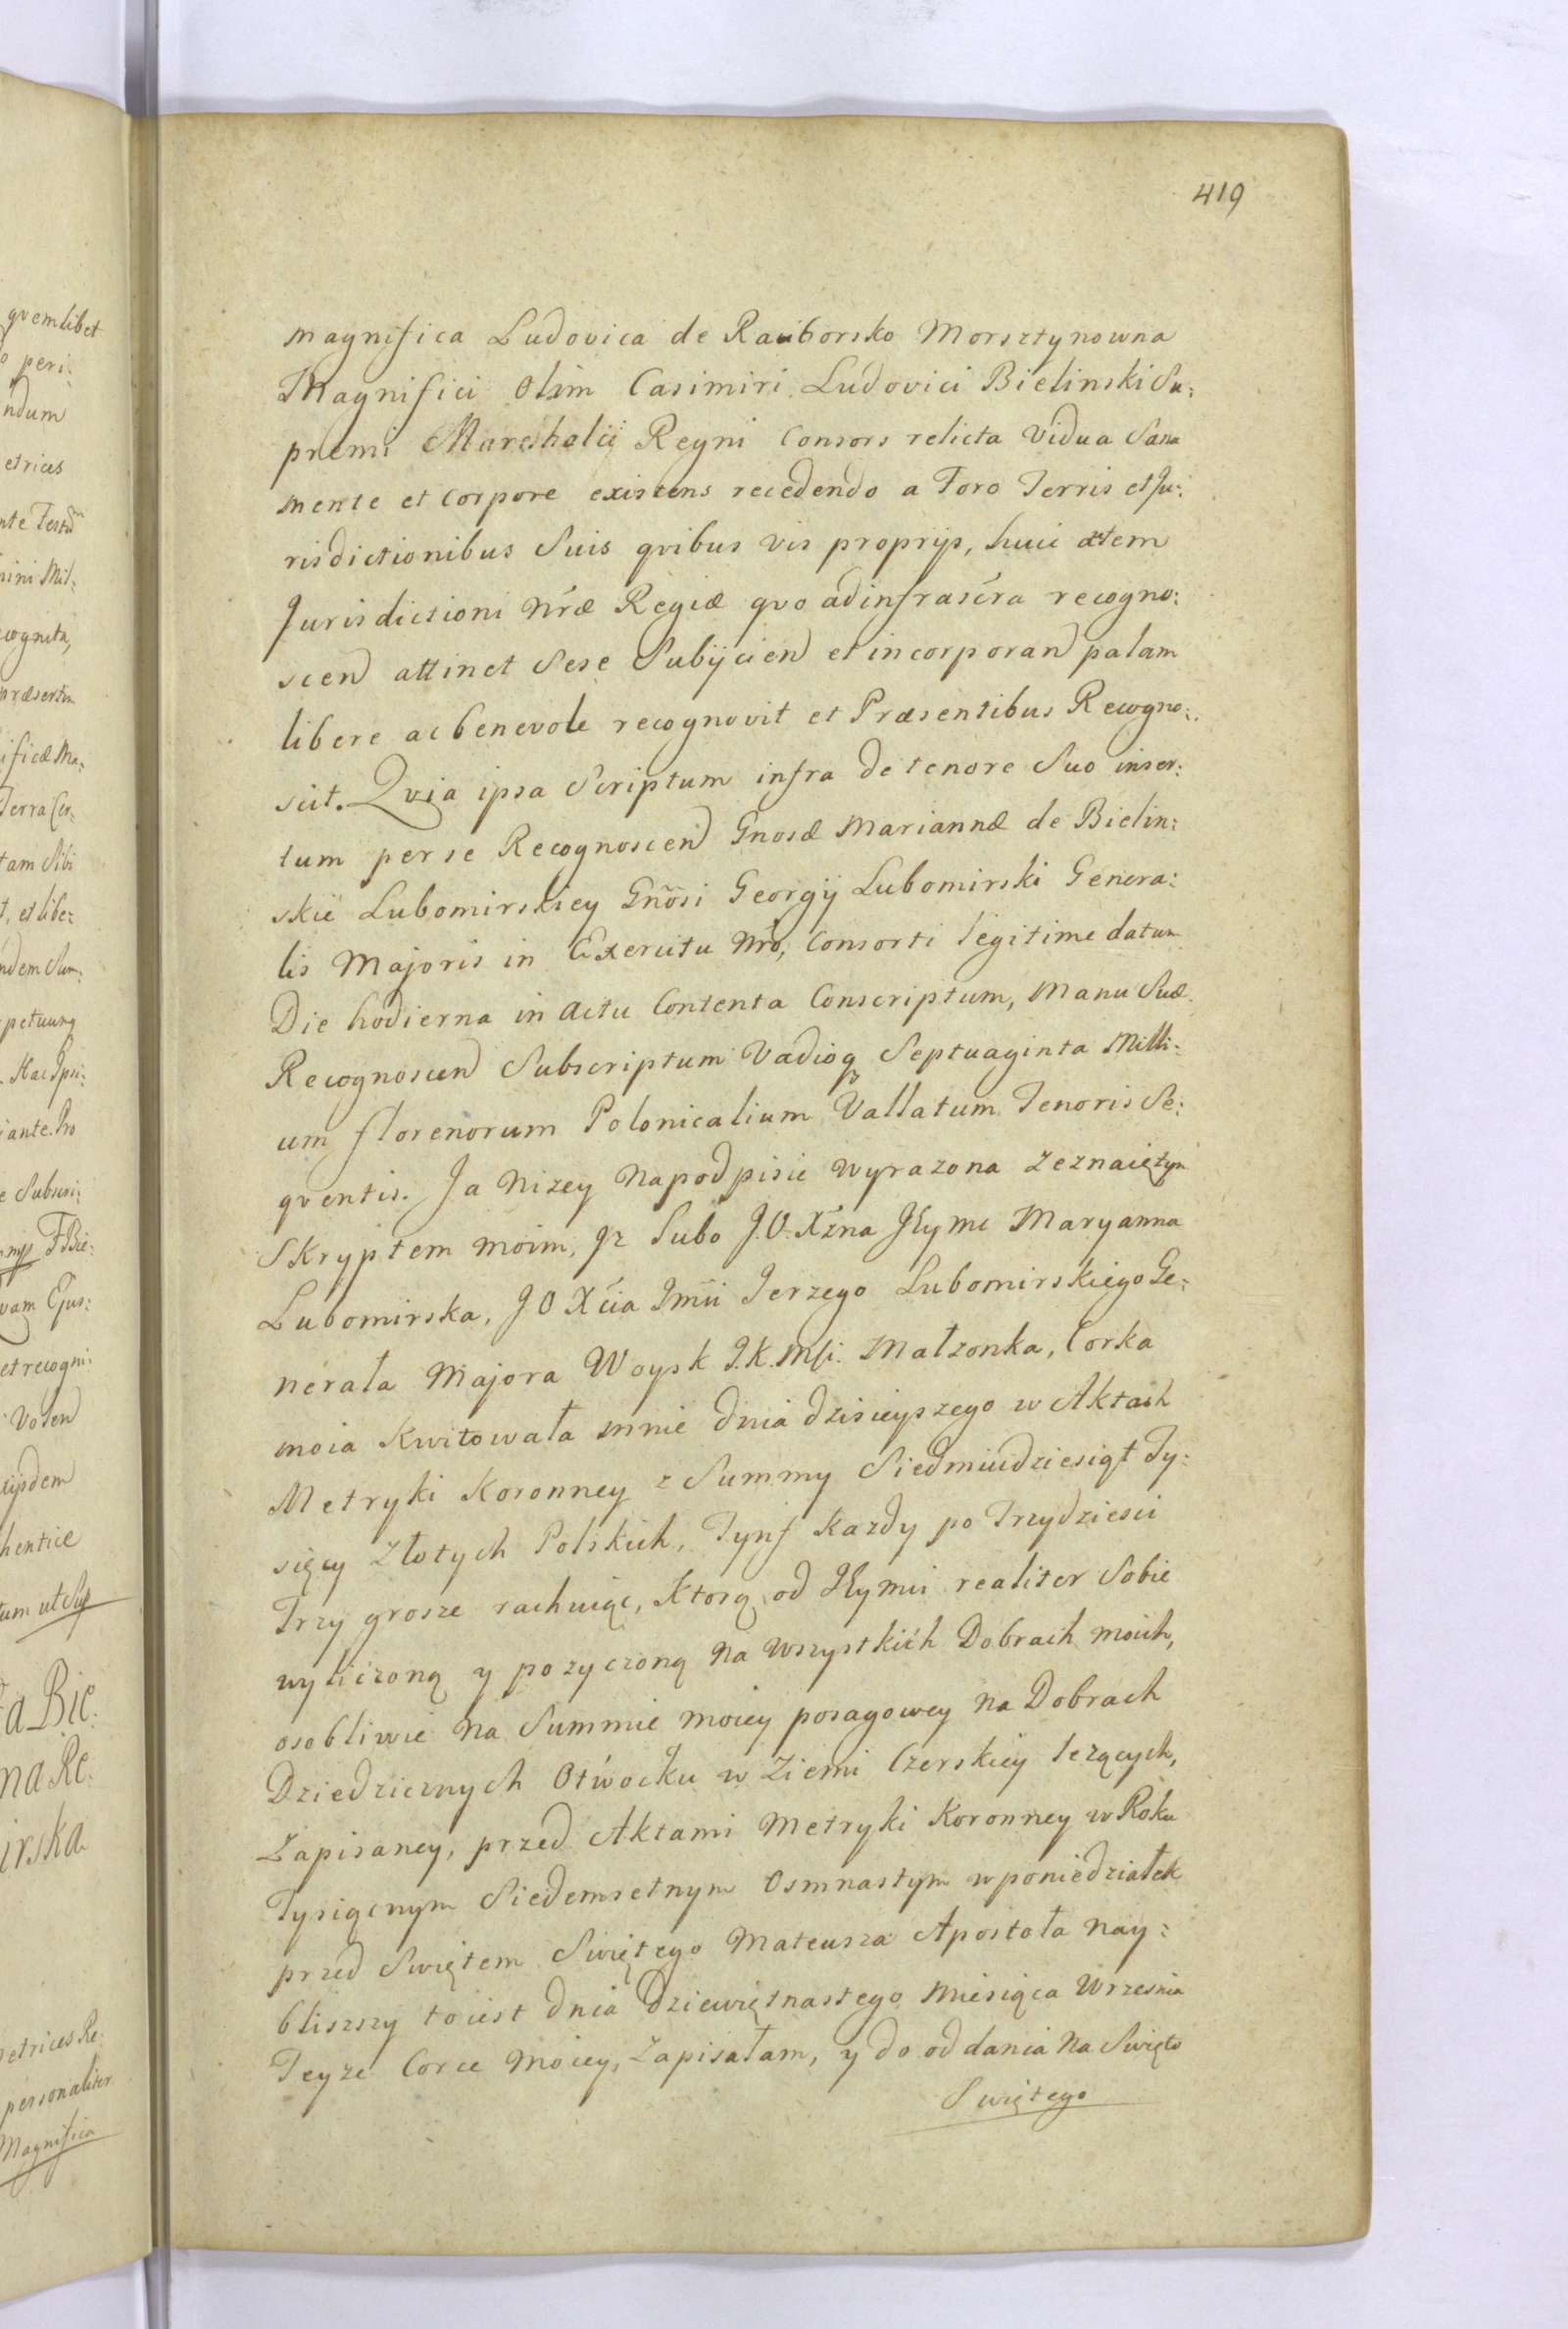 419
magnifica Ludovica de Raciborsko Morsztynowna
Magnifici Olim Casimiri Ludovici Bielinski Su:
premi Mareshalii Regni Consors relicta Vidua Sana
mente et Corpore existens recedendo a Foro Terris et Ju:
risdictionibus Suis qvibus vis proprijs, huic atem
Jurisdictioni Nræ Regiæ qvo ad infrascra recogno:
scen attinet Sese Subijcien et incorporan palam
libere ac benevole recognovit et Præsentibus Recogno:
scit. Qvia ipsa Scriptum infra de tenore Suo inser:
tum per se Recognoscen Gnosæ Mariannæ de Bielin:
skie Lubomirskiey Gnosi Georgij Lubomirski Genera:
lis Majoris in Exercitu Nro, Consorti legitime datum
Die hodierna in Actu Contenta Conscriptum, Manu Suæ
Recognoscen Subscriptum Vadioq Septuaginta Milli:
um florenorum Polonicalium Vallatum Tenoris Se:
qventis. Ja Nizey Napodpisie wyrazona zeznaię tym
Skryptem moim, Jz Lubo J.O. Xżna JEymc Maryanna
Lubomirska, J O Xcia Jmci Jerzego Lubomirskiego Ge:
nerała Majora Woysk J.K.Msci. Małzonka, Corka
moia Kwitowała mnie dnia dzisieyszego w Aktach
Metryki Koronney z Summy Siedmiudziesiąt Ty:
sięcy Złotych Polskich, Tynf Kazdy po Trzydziesci
Trzy grosze rachuiąc, Ktorą od JEymci realiter Sobie
wyliczoną y pozyczoną Na wszystkich Dobrach moich,
osobliwie Na Summie moiey posagowey Na Dobrach
Dziedzicznych Otwocku w Ziemi Czerskiey lezących,
Zapisaney, przed Aktami Metryki Koronney w Roku
Tysiącnym Siedemsetnym Osmnastym w poniedziałek
przed Swiętem Swiętego Mateusza Apostoła Nay:
bliszszy toiest dnia Dziewiętnastego Miesiąca Wrzesnia
Teyze Corce Moiey, Zapisałam, y do oddania Na Swięto
Swiętego